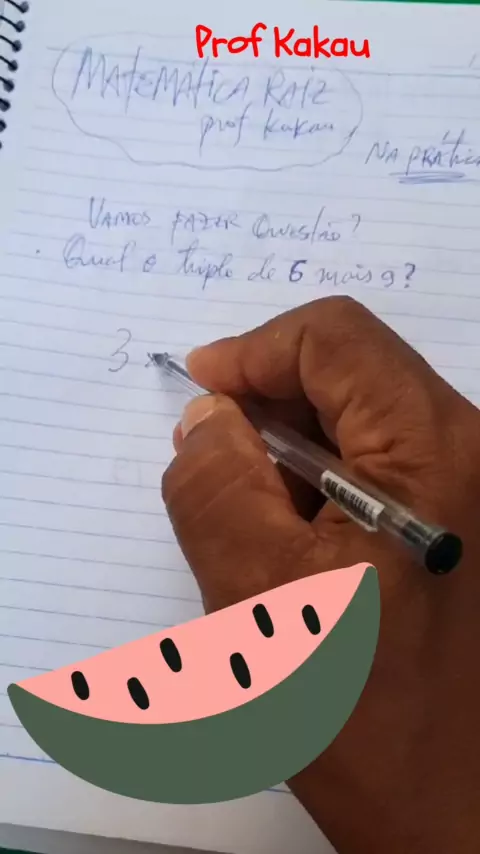 Prof Kakau
MATEMÁTICA RAIZ
prof kakau
NA PRÁtic
VAMOS FAZER Questão?
Qual o triplo de 6 mais 9?
3 .